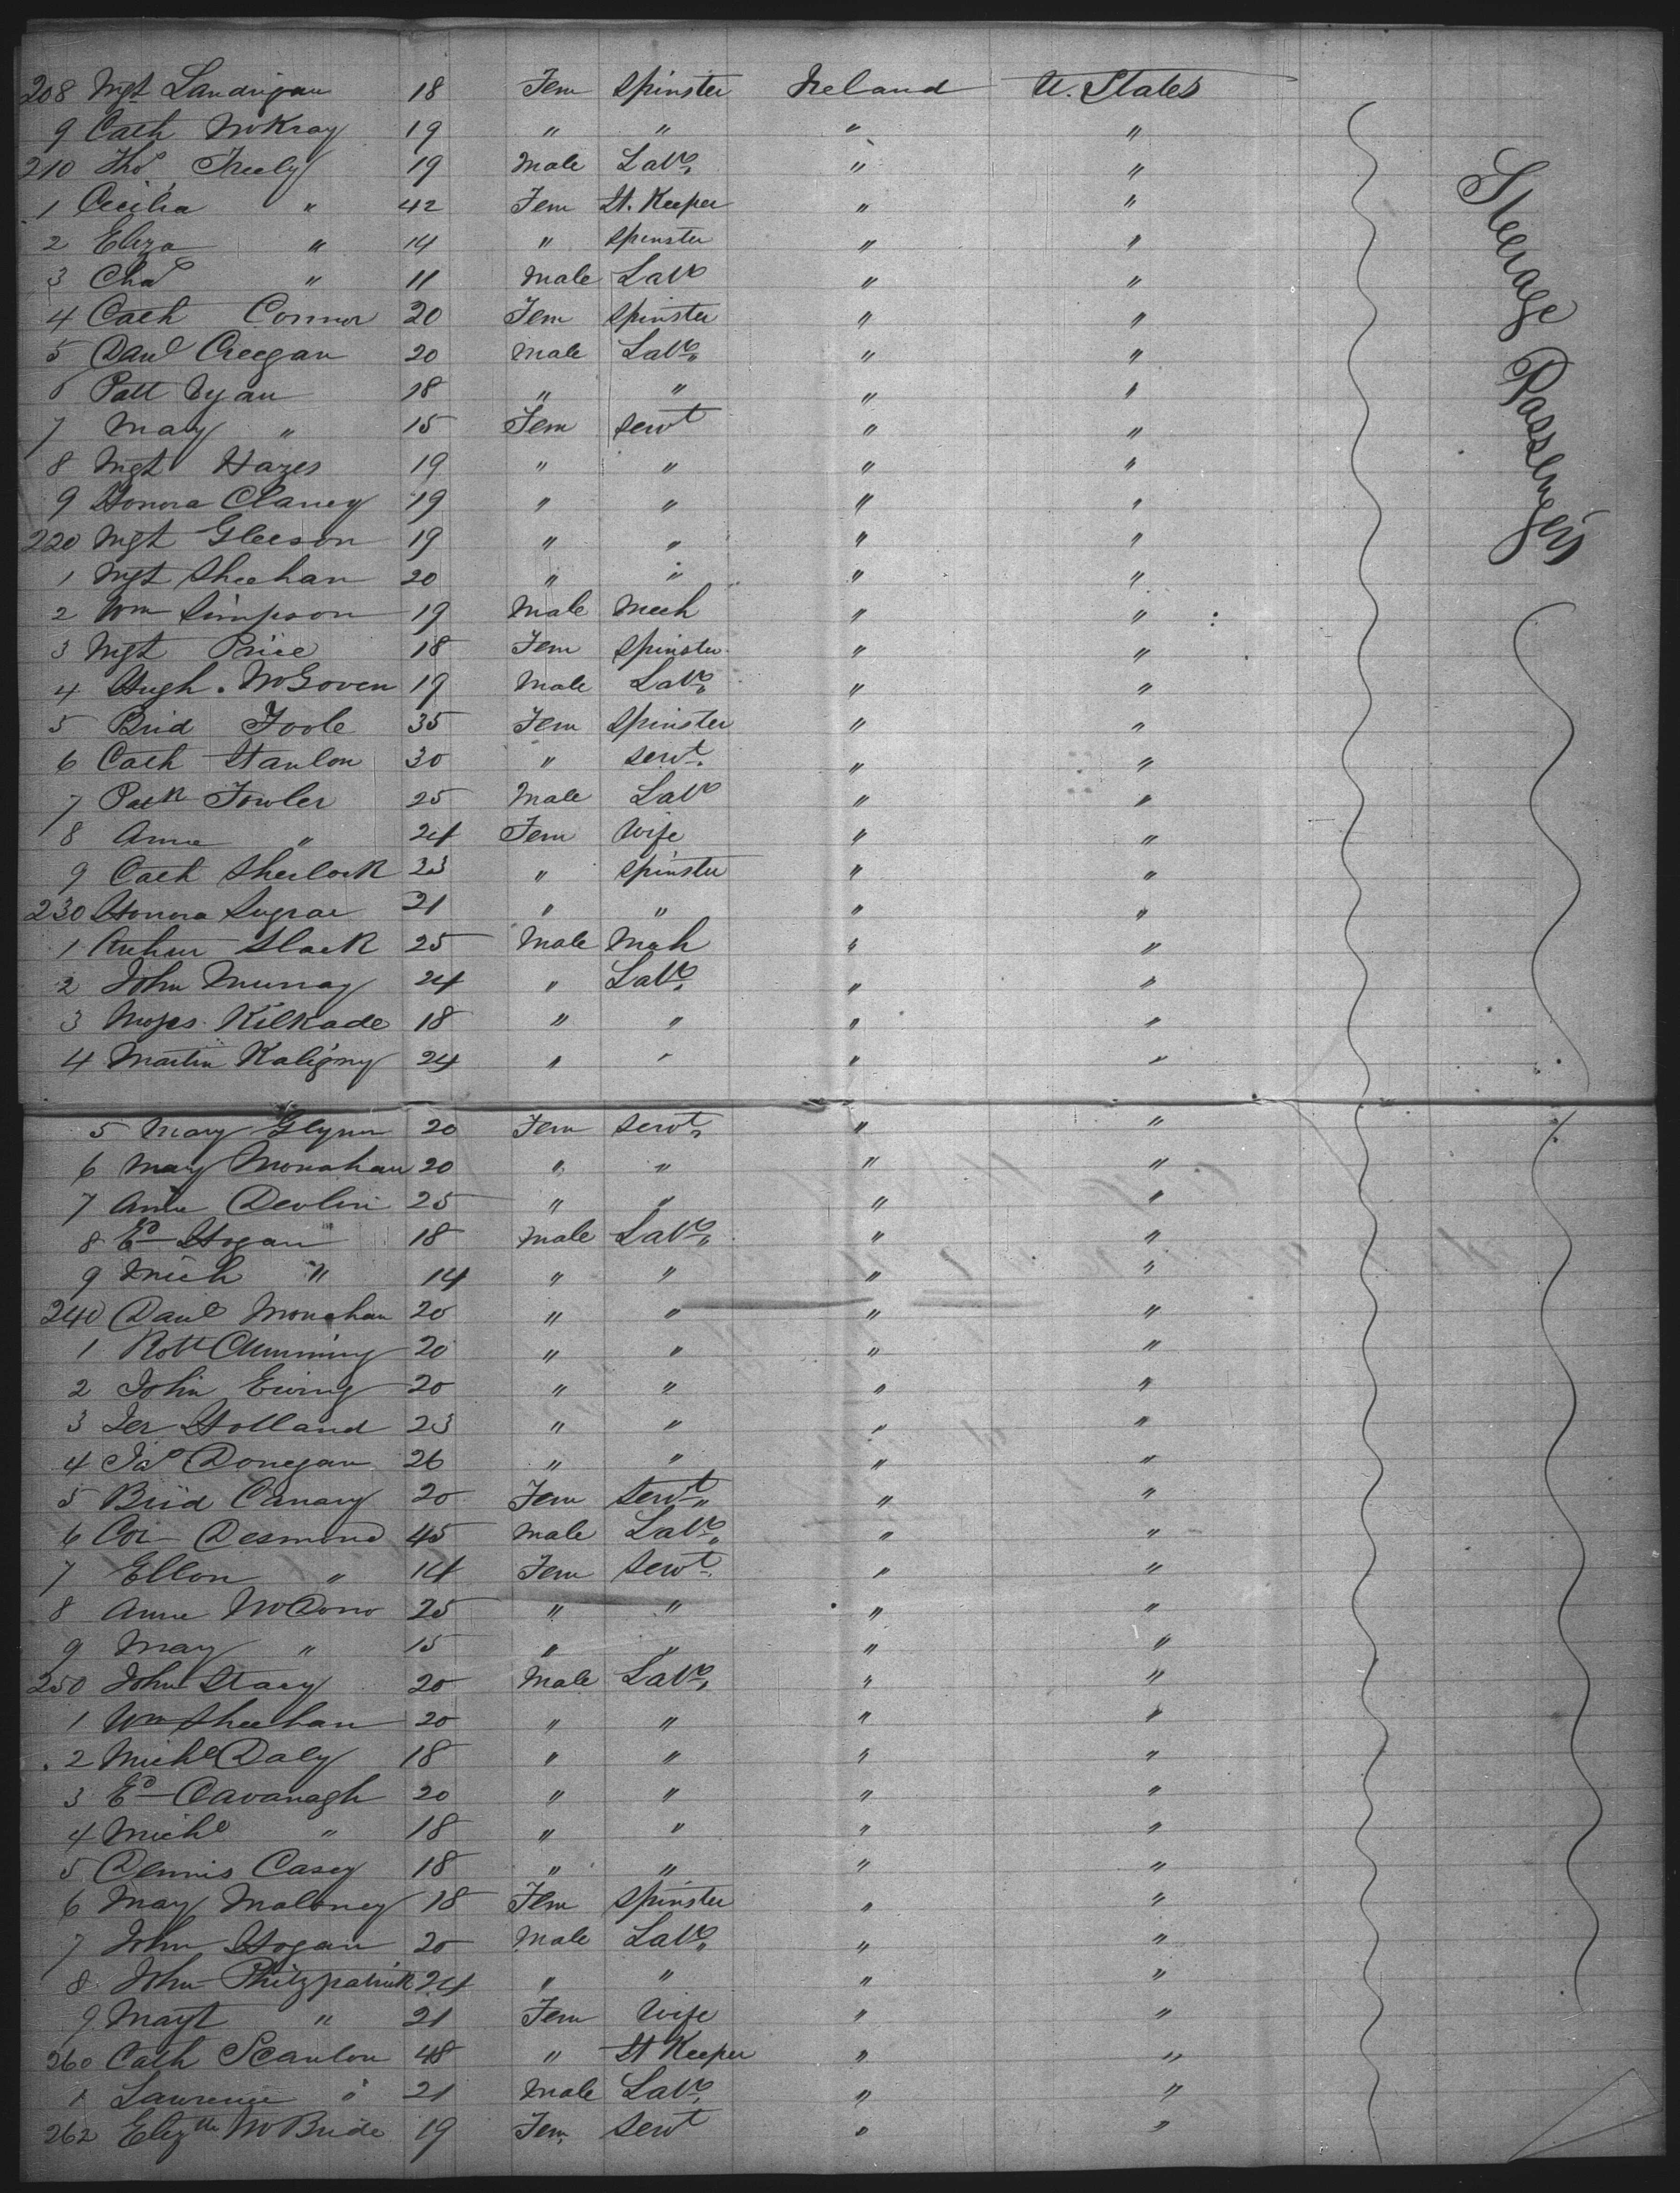 208 Mgt Landrigan 18 Fem Spinster Ireland U. States
9 Cath McKray 19 " " " "
210 Thos Freely 19 Male Labr " "
1 Cecilia " 42 Fem H. Keeper " "
2 Eliza " 14 " Spinster " "
3 Chas " 11 Male Labr " "
4 Cath Connor 20 Fem Spinster " "
5 Danl Creegan 20 Male Labr " "
6 Patt Ryan 18 " " " "
7 Mary " 15 Fem Servt " "
8 Mgt Hayes 19 " " " "
9 Honora Clancy 19 " " " "
220 Mgt Gleeson 19 " " " "
1 Mgt Sheehan 20 " " " "
2 Wm Simpson 19 Male Mech " "
3 Mgt Price 18 Fem Spinster " "
4 Hugh McGoven 19 Male Labr " "
5 Brid Toole 35 Fem Spinster " "
6 Cath Hanlon 30 " Servt " "
7 Patk Fowler 25 Male Labr " "
8 Anne " 24 Fem Wife " "
9 Cath Sherlock 23 " Spinster " "
230 Honora Sugrae 21 " " " "
1 Arthur Slack 25 Male Mech " "
2 John Murray 24 " Labr " "
3 Moses Kilkade 18 " " " "
4 Martin 24 " " " "
5 Mary Glynn 20 Fem Servt " "
6 Mary Monahan 20 " " " "
7 Anne Devlin 25 " " " "
8 Ed Hogan 18 Male Labr " "
9 Mich " 14 " " " "
240 Danl Monahan 20 " " " "
1 Robt Cumming 20 " " " "
2 John Ewing 20 " " " "
3 Jer Holland 23 " " " "
4 Jas Donegan 26 " " " "
5 Brid Canary 20 Fem Servt " "
6 Cor Desmond 45 Male Labr " "
7 Ellen " 14 Fem Servt " "
8 Anne McDono 25 " " " "
9 Mary " 15 " " " "
250 John Stacy 20 Male Labr " "
1 Wm Sheehan 20 " " " "
2 Michl Daly 18 " " " "
3 Ed Cavanagh 20 " " " "
4 Michl " 18 " " " "
5 Dennis Casey 18 " " " "
6 Mary Maloney 18 Fem Spinster " "
7 John Hogan 20 Male Labr " "
8 John Phitzpatrick 24 " " " "
9 Margt " 21 Fem Wife " "
260 Cath Scanlon 48 " H Keeper " "
1 Lawrence " 21 Male Labr " "
262 Elizth McBride 19 Fem Servt " "
Steerage Passengers